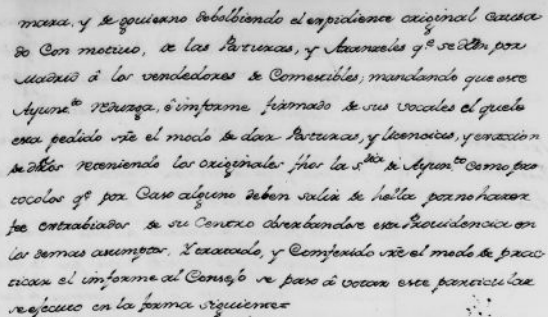 mara, y de govierno debolbiendo el expidiente original causa
do Con motivo, de las Posturas, y Aranzeles q.e se dan por
Madrid â los vendedores de Comestibles; mandando que este
Ayunt.to reduzga, è informe firmado de sus vocales el que le
esta pedido sre el modo de dar Posturas, y licencias, y exaccion
de dros reteniendo los originales fhos la s.ria de Ayun.to como pro
tocolos q.e por Caso alguno deben salir de hella por no hazer
fee extrabiados de su Centro obserbandose esta Providencia en
los demas asumptos. Y tratado, y Conferido sre el modo de prac
ticar el informe al Consejo se paso â votar este particular
se ejecuto en la forma siguiente=